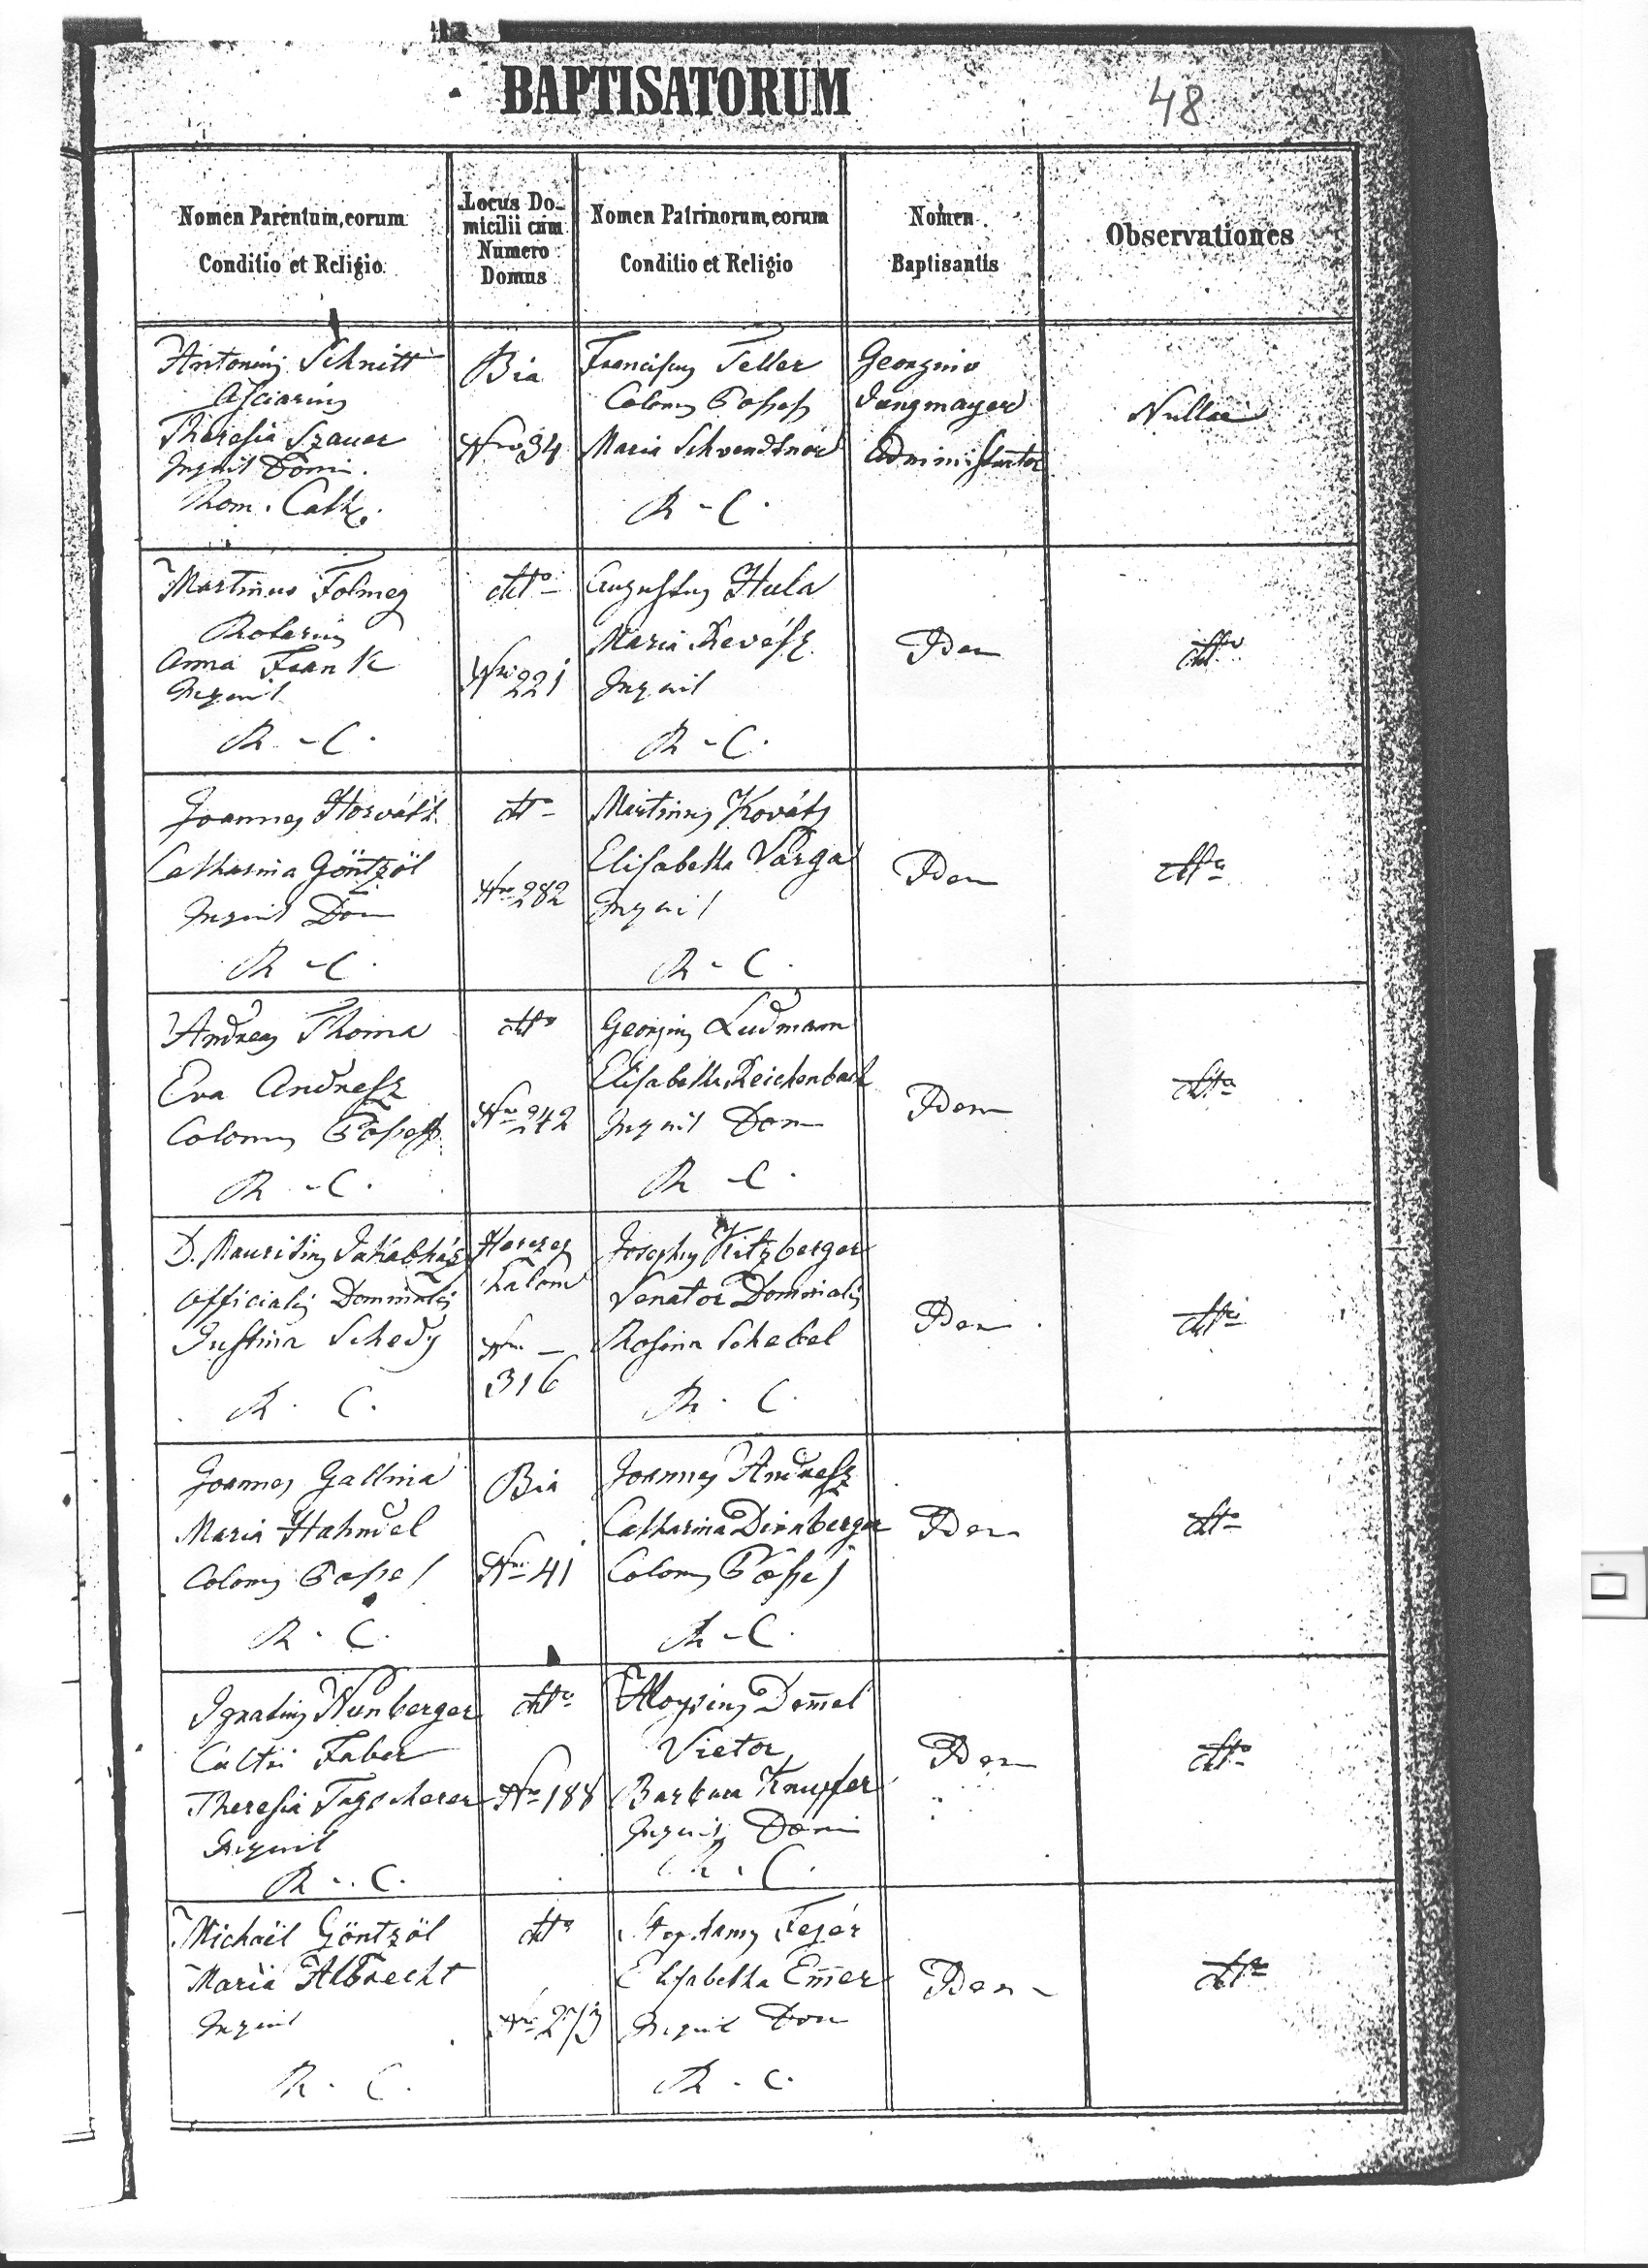 BAPTISATORUM
48
Nomen Parentum, eorum
Conditio et Religio
Locus Do-
micilii cum
Numero
Domus
Nomen Patrinorum, eorum
Conditio et Religio
Nomen
Baptisantis
Observationes
Antonius Schnitt
Asciarius
Theresia Szauer
Inquil Domi.
Rom. Cath.
Bia
Nro 34
Franciscus Teller
Colonus Possess
Maria Schvendtner
R - C.
Georgius
Jungmayer
Administrator
Nullae
Martinus Folmeg
Rotarius
Anna Frank
Inquil
R. - C.
dtto
Nro 221
Augustus Hula
Maria Revész
Inquil
R - C.
Idem
dtto
Joannes Horváth
Catharina Göntzöl
Inquil Dom
R - C.
dtto
Nro 282
Martinus Kováts
Elisabetha Varga
Inquil
R - C.
Idem
dtto
Andreas Thoma
Eva Andresz
Colonus Possess.
R. - C.
dtto
Nro 242
Georgius Ludmann
Elisabetha Reichenbach
Inquil Dom
R - C.
Idem
dtto
D. Mauritius Jakabház
Officialis Dominalis
Justina Schedy
R. C.
Herczeg
halom
Nro -
316
Josephus Kitzberger
Venator Dominalis
Rosina Schebel
R. C.
Idem
dtto
Joannes Gallina
Maria Hahnel
Colonus Posses
R. C.
Bia
Nro 41
Joannes Andresz
Catharina Dirnberger
Colonus Posses
R - C.
Idem
dtto
Ignatius Nunberger
Faber
Theresia Tagscherer
Inquil
R - C.
dtto
Nro 188
Aloysius Dom̄el
Vietor
Barbara Knupfer
Inquil Domi
R. C.
Idem
dtto
Michaël Göntzöl
Maria Albrecht
Inquil
R. C.
dtto
Nro 273
Stephanus Fejér
Elisabetha Em̄er
Inquil Dom
R. C.
Idem
dtto